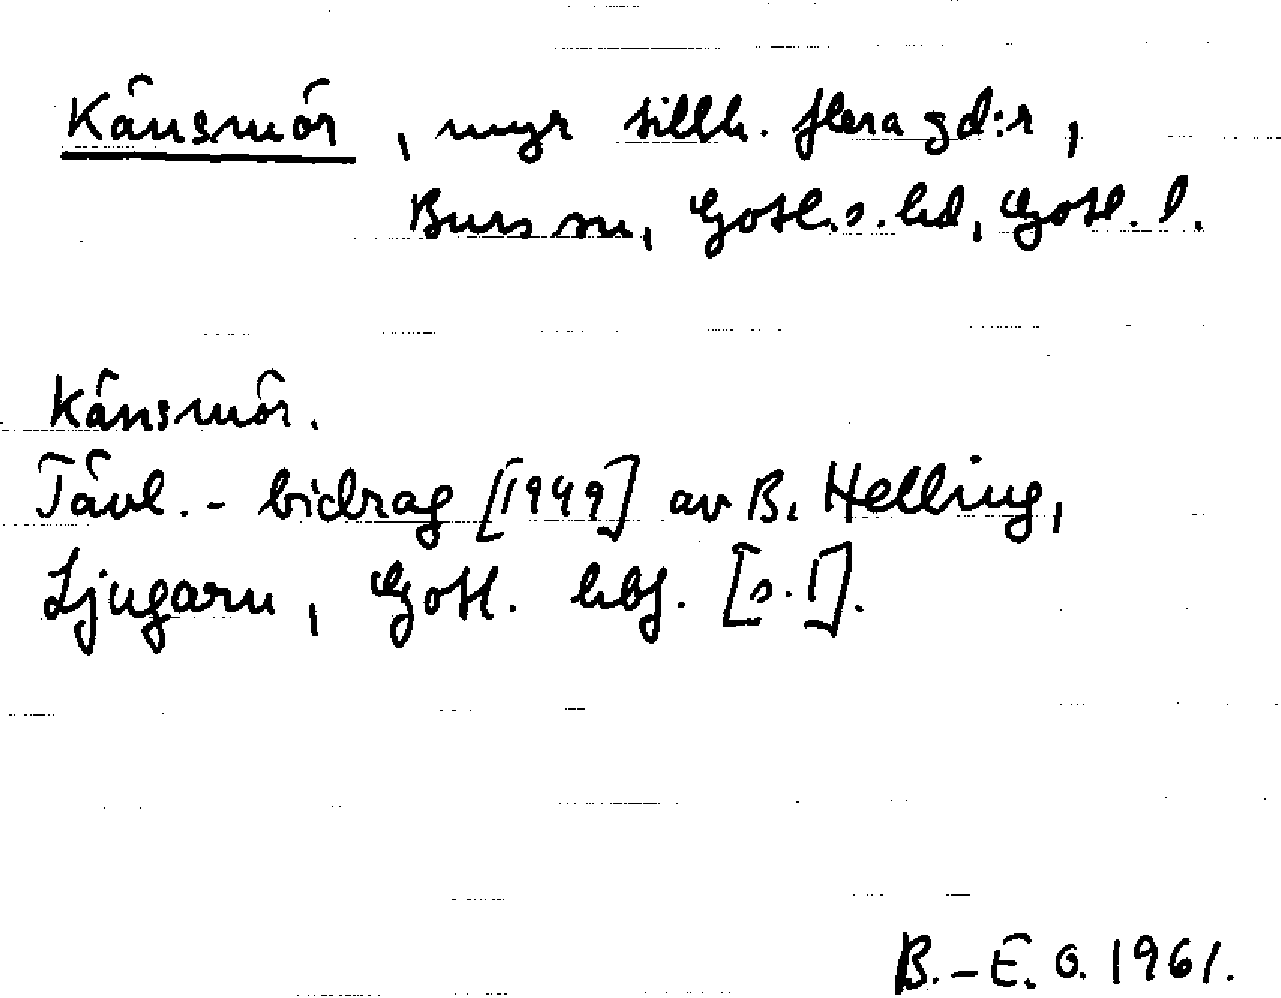 Känsmör, myr tillh. flera gd:r,
Burs sn, Gotl. s. hd, Gotl. l.
Känsmör.
Tävl.-bidrag [1949] av B. Hellring,
Ljugarn, Gotl. hbf. [s. 1].
B.-E. O. 1961.